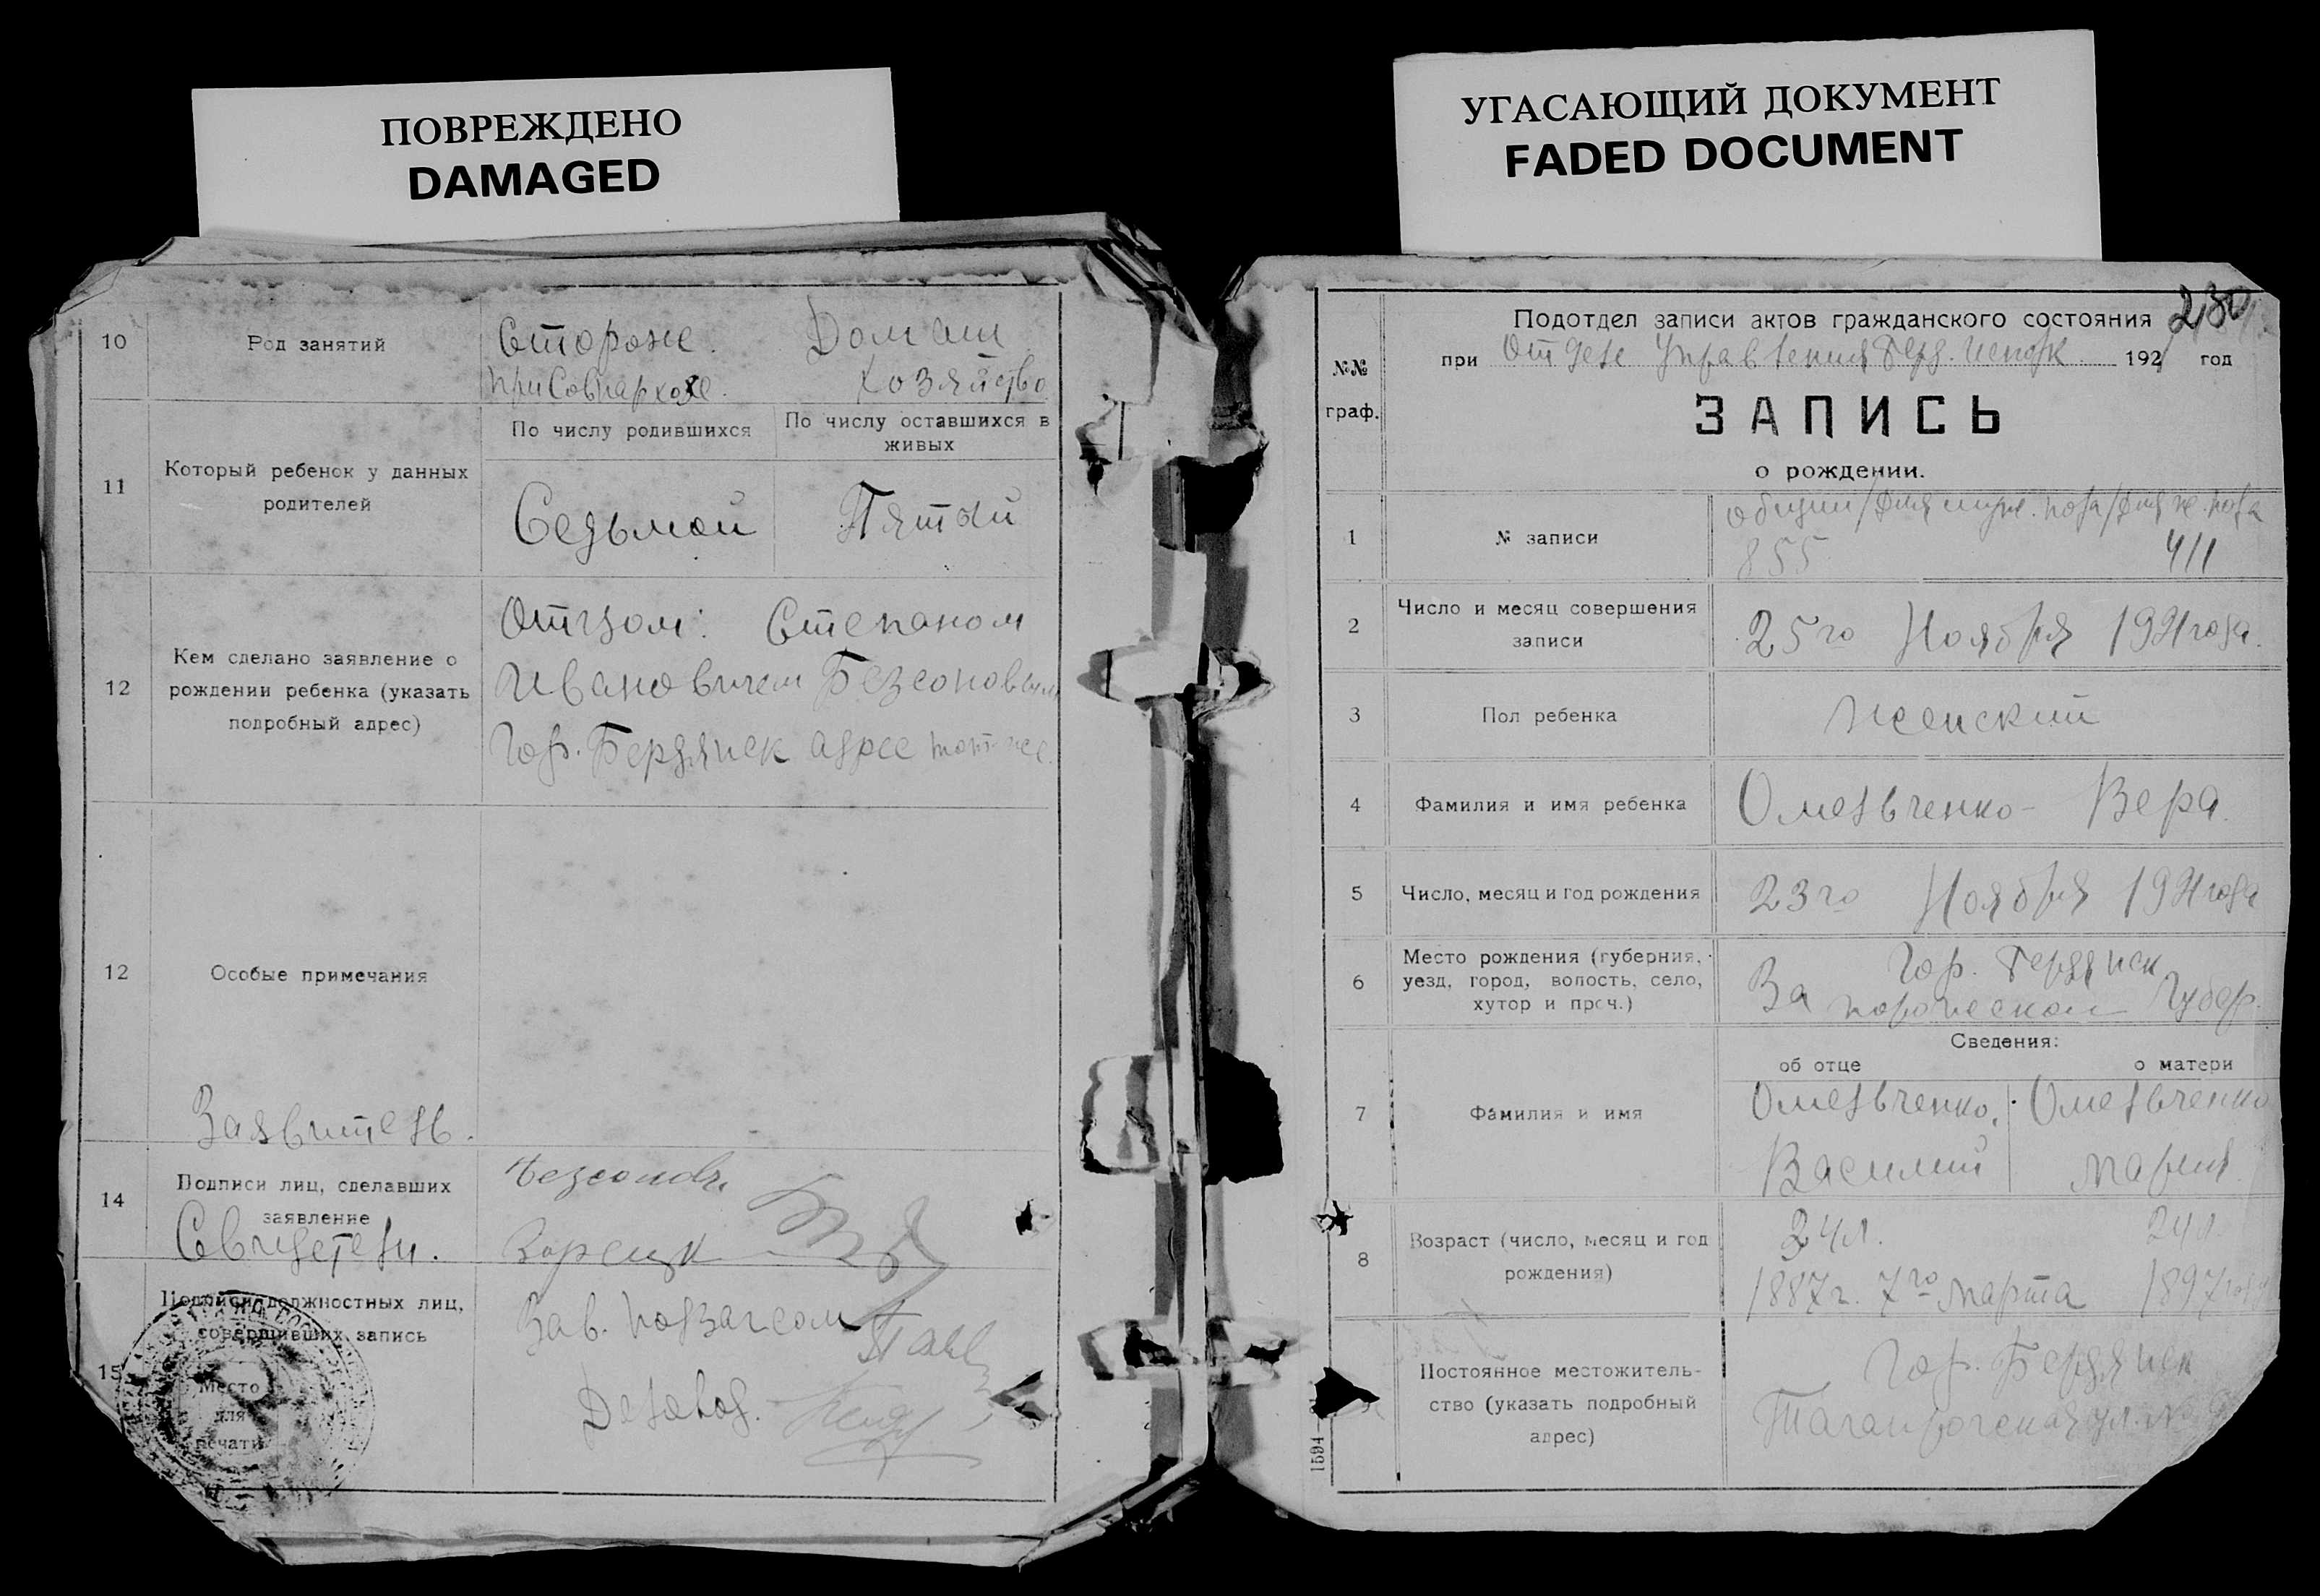 ПОВРЕЖДЕНО
DAMAGED
10
Род занятий
Сторож. Домаш.
при Совнархозе. хозяйство
11
Который ребенок у данных
родителей
По числу родившихся
По числу оставшихся в
живых
Седьмой
Пятый
12
Кем сделано заявление о
рождении ребенка (указать
подробный адрес)
Отцом: Степаном
Ивановичем Безсоновым
Гор. Бердянск адрес тот-же.
12
Особые примечания
Заявитель.
14
Подписи лиц, сделавших
заявление
Свидетели.
Безсоновъ
15
Подписи должностных лиц,
совершивших запись
Место
для
печати
Зав. подзагсом
Делов.
УГАСАЮЩИЙ ДОКУМЕНТ
FADED DOCUMENT
230
№№
граф.
Подотдел записи актов гражданского состояния
при Отделе Управления Берд. Исполк. 1921 год
ЗАПИСЬ
о рождении.
1
№ записи
общий/для муж. пола/для ж. пола
855 411
2
Число и месяц совершения
записи
25го Ноября 1921 года.
3
Пол ребенка
Женский
4
Фамилия и имя ребенка
Омельченко - Вера.
5
Число, месяц и год рождения
23го Ноября 1921 года
6
Место рождения (губерния,
уезд, город, волость, село,
хутор и проч.)
Гор. Бердянск
Запорожской Губер.
Сведения:
об отце
о матери
7
Фамилия и имя
Омельченко, Омельченко
Василий Мария
8
Возраст (число, месяц и год
рождения)
24 л. 24 л.
1887 г. 7го Марта 1897 года
Постоянное местожитель-
ство (указать подробный
адрес)
Гор. Бердянск
Таганрогская ул. №
1594